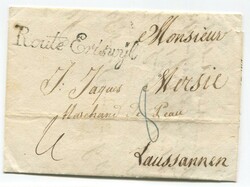 Route Eriswyl
Monsieur
J: Jaques Morsie
Marchand de Peau
8
Laussannen